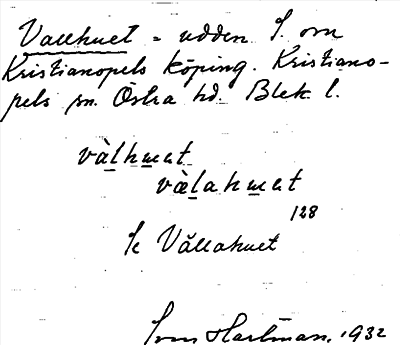 Vallhuet = udden S. om
Kristianopels köping. Kristiano-
pels sn. Östra hd. Blek l.
vàlhuet
vàlahuet
128
Se Vällahuet
Sven Hartman, 1932